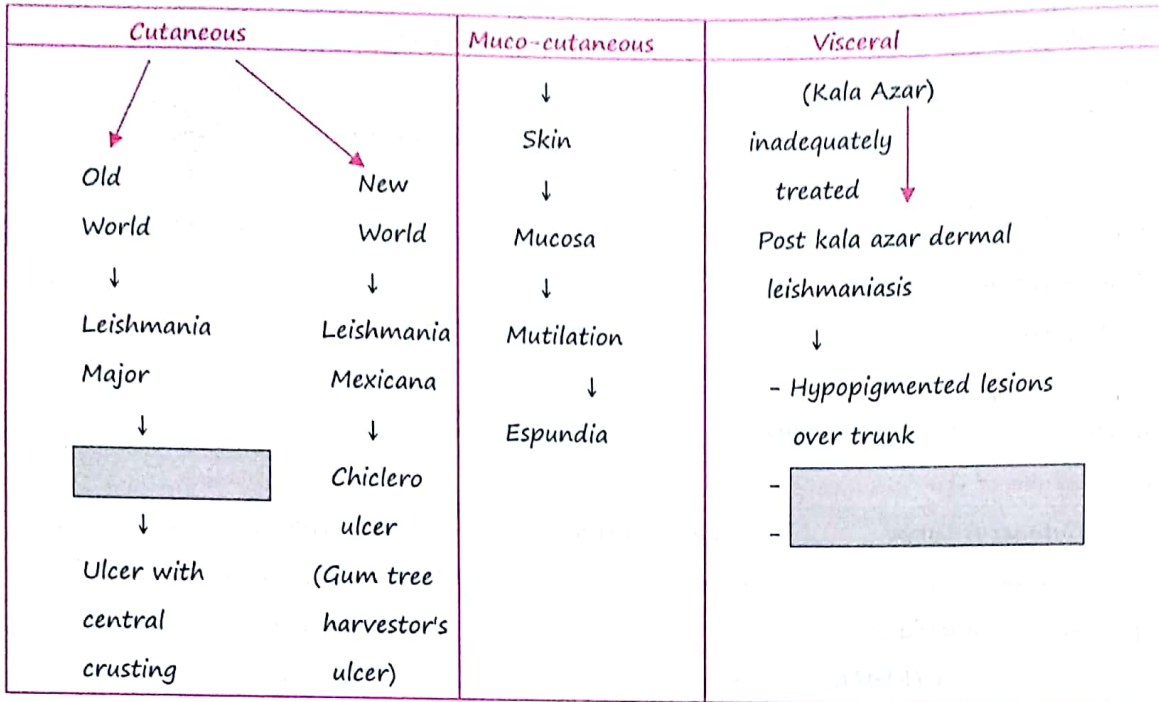 Cutaneous
Old
World
↓
Leishmania
Major
↓
↓
Ulcer with
central
crusting
New
World
↓
Leishmania
Mexicana
↓
Chiclero
ulcer
(Gum tree
harvestor's
ulcer)
Muco-cutaneous
↓
Skin
↓
Mucosa
↓
Mutilation
↓
Espundia
Visceral
(Kala Azar)
inadequately
treated
Post kala azar dermal
leishmaniasis
↓
- Hypopigmented lesions
over trunk
-
-